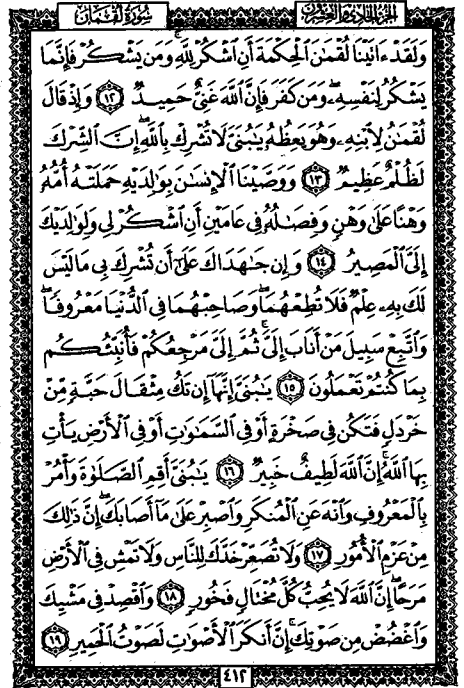 الجزء الحادي والعشرون سورة لقمان
وَلَقَدْ ءَاتَيْنَا لُقْمَٰنَ ٱلْحِكْمَةَ أَنِ ٱشْكُرْ لِلَّهِ ۚ وَمَن يَشْكُرْ فَإِنَّمَا
يَشْكُرُ لِنَفْسِهِۦ ۖ وَمَن كَفَرَ فَإِنَّ ٱللَّهَ غَنِىٌّ حَمِيدٌ ١٢ وَإِذْ قَالَ
لُقْمَٰنُ لِٱبْنِهِۦ وَهُوَ يَعِظُهُۥ يَٰبُنَىَّ لَا تُشْرِكْ بِٱللَّهِ ۖ إِنَّ ٱلشِّرْكَ
لَظُلْمٌ عَظِيمٌ ١٣ وَوَصَّيْنَا ٱلْإِنسَٰنَ بِوَٰلِدَيْهِ حَمَلَتْهُ أُمُّهُۥ
وَهْنًا عَلَىٰ وَهْنٍ وَفِصَٰلُهُۥ فِى عَامَيْنِ أَنِ ٱشْكُرْ لِى وَلِوَٰلِدَيْكَ
إِلَىَّ ٱلْمَصِيرُ ١٤ وَإِن جَٰهَدَاكَ عَلَىٰٓ أَن تُشْرِكَ بِى مَا لَيْسَ
لَكَ بِهِۦ عِلْمٌ فَلَا تُطِعْهُمَا ۖ وَصَاحِبْهُمَا فِى ٱلدُّنْيَا مَعْرُوفًا ۖ
وَٱتَّبِعْ سَبِيلَ مَنْ أَنَابَ إِلَىَّ ۚ ثُمَّ إِلَىَّ مَرْجِعُكُمْ فَأُنَبِّئُكُم
بِمَا كُنتُمْ تَعْمَلُونَ ١٥ يَٰبُنَىَّ إِنَّهَآ إِن تَكُ مِثْقَالَ حَبَّةٍ مِّنْ
خَرْدَلٍ فَتَكُن فِى صَخْرَةٍ أَوْ فِى ٱلسَّمَٰوَٰتِ أَوْ فِى ٱلْأَرْضِ يَأْتِ
بِهَا ٱللَّهُ ۚ إِنَّ ٱللَّهَ لَطِيفٌ خَبِيرٌ ١٦ يَٰبُنَىَّ أَقِمِ ٱلصَّلَوٰةَ وَأْمُرْ
بِٱلْمَعْرُوفِ وَٱنْهَ عَنِ ٱلْمُنكَرِ وَٱصْبِرْ عَلَىٰ مَآ أَصَابَكَ ۖ إِنَّ ذَٰلِكَ
مِنْ عَزْمِ ٱلْأُمُورِ ١٧ وَلَا تُصَعِّرْ خَدَّكَ لِلنَّاسِ وَلَا تَمْشِ فِى ٱلْأَرْضِ
مَرَحًا ۖ إِنَّ ٱللَّهَ لَا يُحِبُّ كُلَّ مُخْتَالٍ فَخُورٍ ١٨ وَٱقْصِدْ فِى مَشْيِكَ
وَٱغْضُضْ مِن صَوْتِكَ ۚ إِنَّ أَنكَرَ ٱلْأَصْوَٰتِ لَصَوْتُ ٱلْحَمِيرِ ١٩
٤١٢